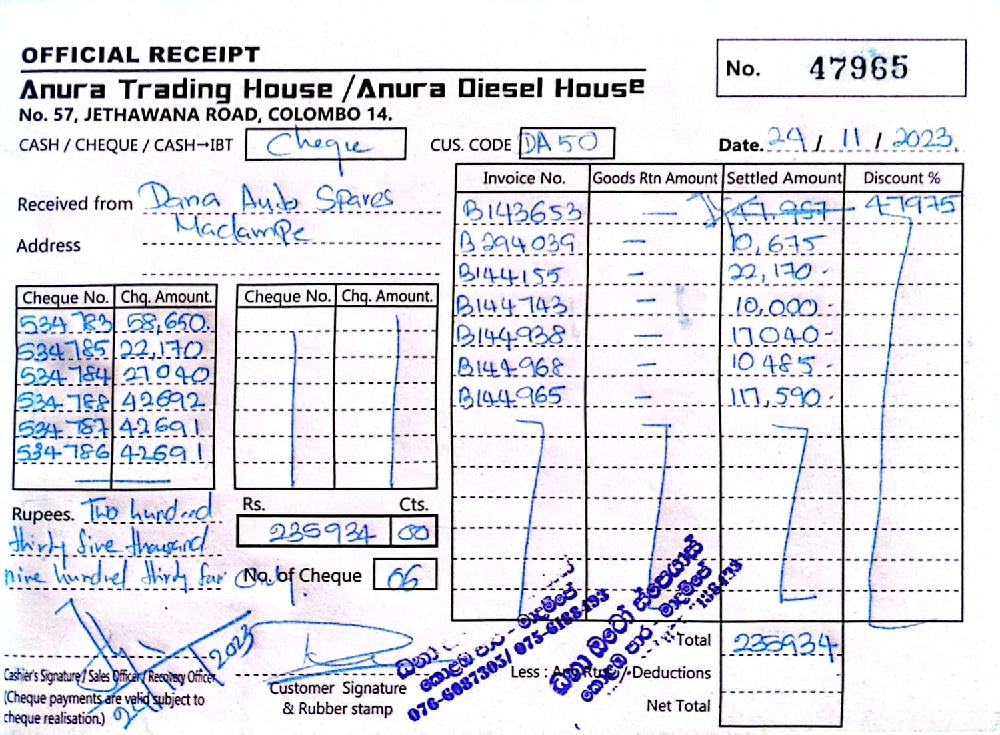 OFFICIAL RECEIPT
No. 47965
Anura Trading House / Anura Diesel House
No. 57, JETHAWANA ROAD, COLOMBO 14.
CASH / CHEQUE / CASH→IBT Cheque CUS. CODE DA 50 Date. 29 / 11 / 2023.
Invoice No. Goods Rtn Amount Settled Amount Discount %
Received from Dana Auto Spares
Address Madampe
B143653 — 47975
B294039 — 10,675
B144155 - 22,170 -
B144743 — 10,000 -
B144938 — 17040 -
B144968 - 10485 -
B144965 - 117,590 -
Cheque No. Chq. Amount. Cheque No. Chq. Amount.
534783 58,650.
534785 22,170
534784 27040
534788 42692
534787 42691
534786 42691
Rupees. Two hundred
thirty five thousand
nine hundred thirty four only.
Rs. Cts.
235934 00
No. of Cheque 06
Total 235934
Less : Any Rtns / Deductions
Net Total
Cashier's Signature / Sales Officer / Recovery Officer
(Cheque payments are valid subject to
cheque realisation.)
29/11/2023
Customer Signature
& Rubber stamp
කොළඹ පාර - මාදම්පේ
076-6087305/ 075-6188493
ඩනා ඔටෝ ස්පෙයාස්
කොළඹ පාර - මාදම්පේ